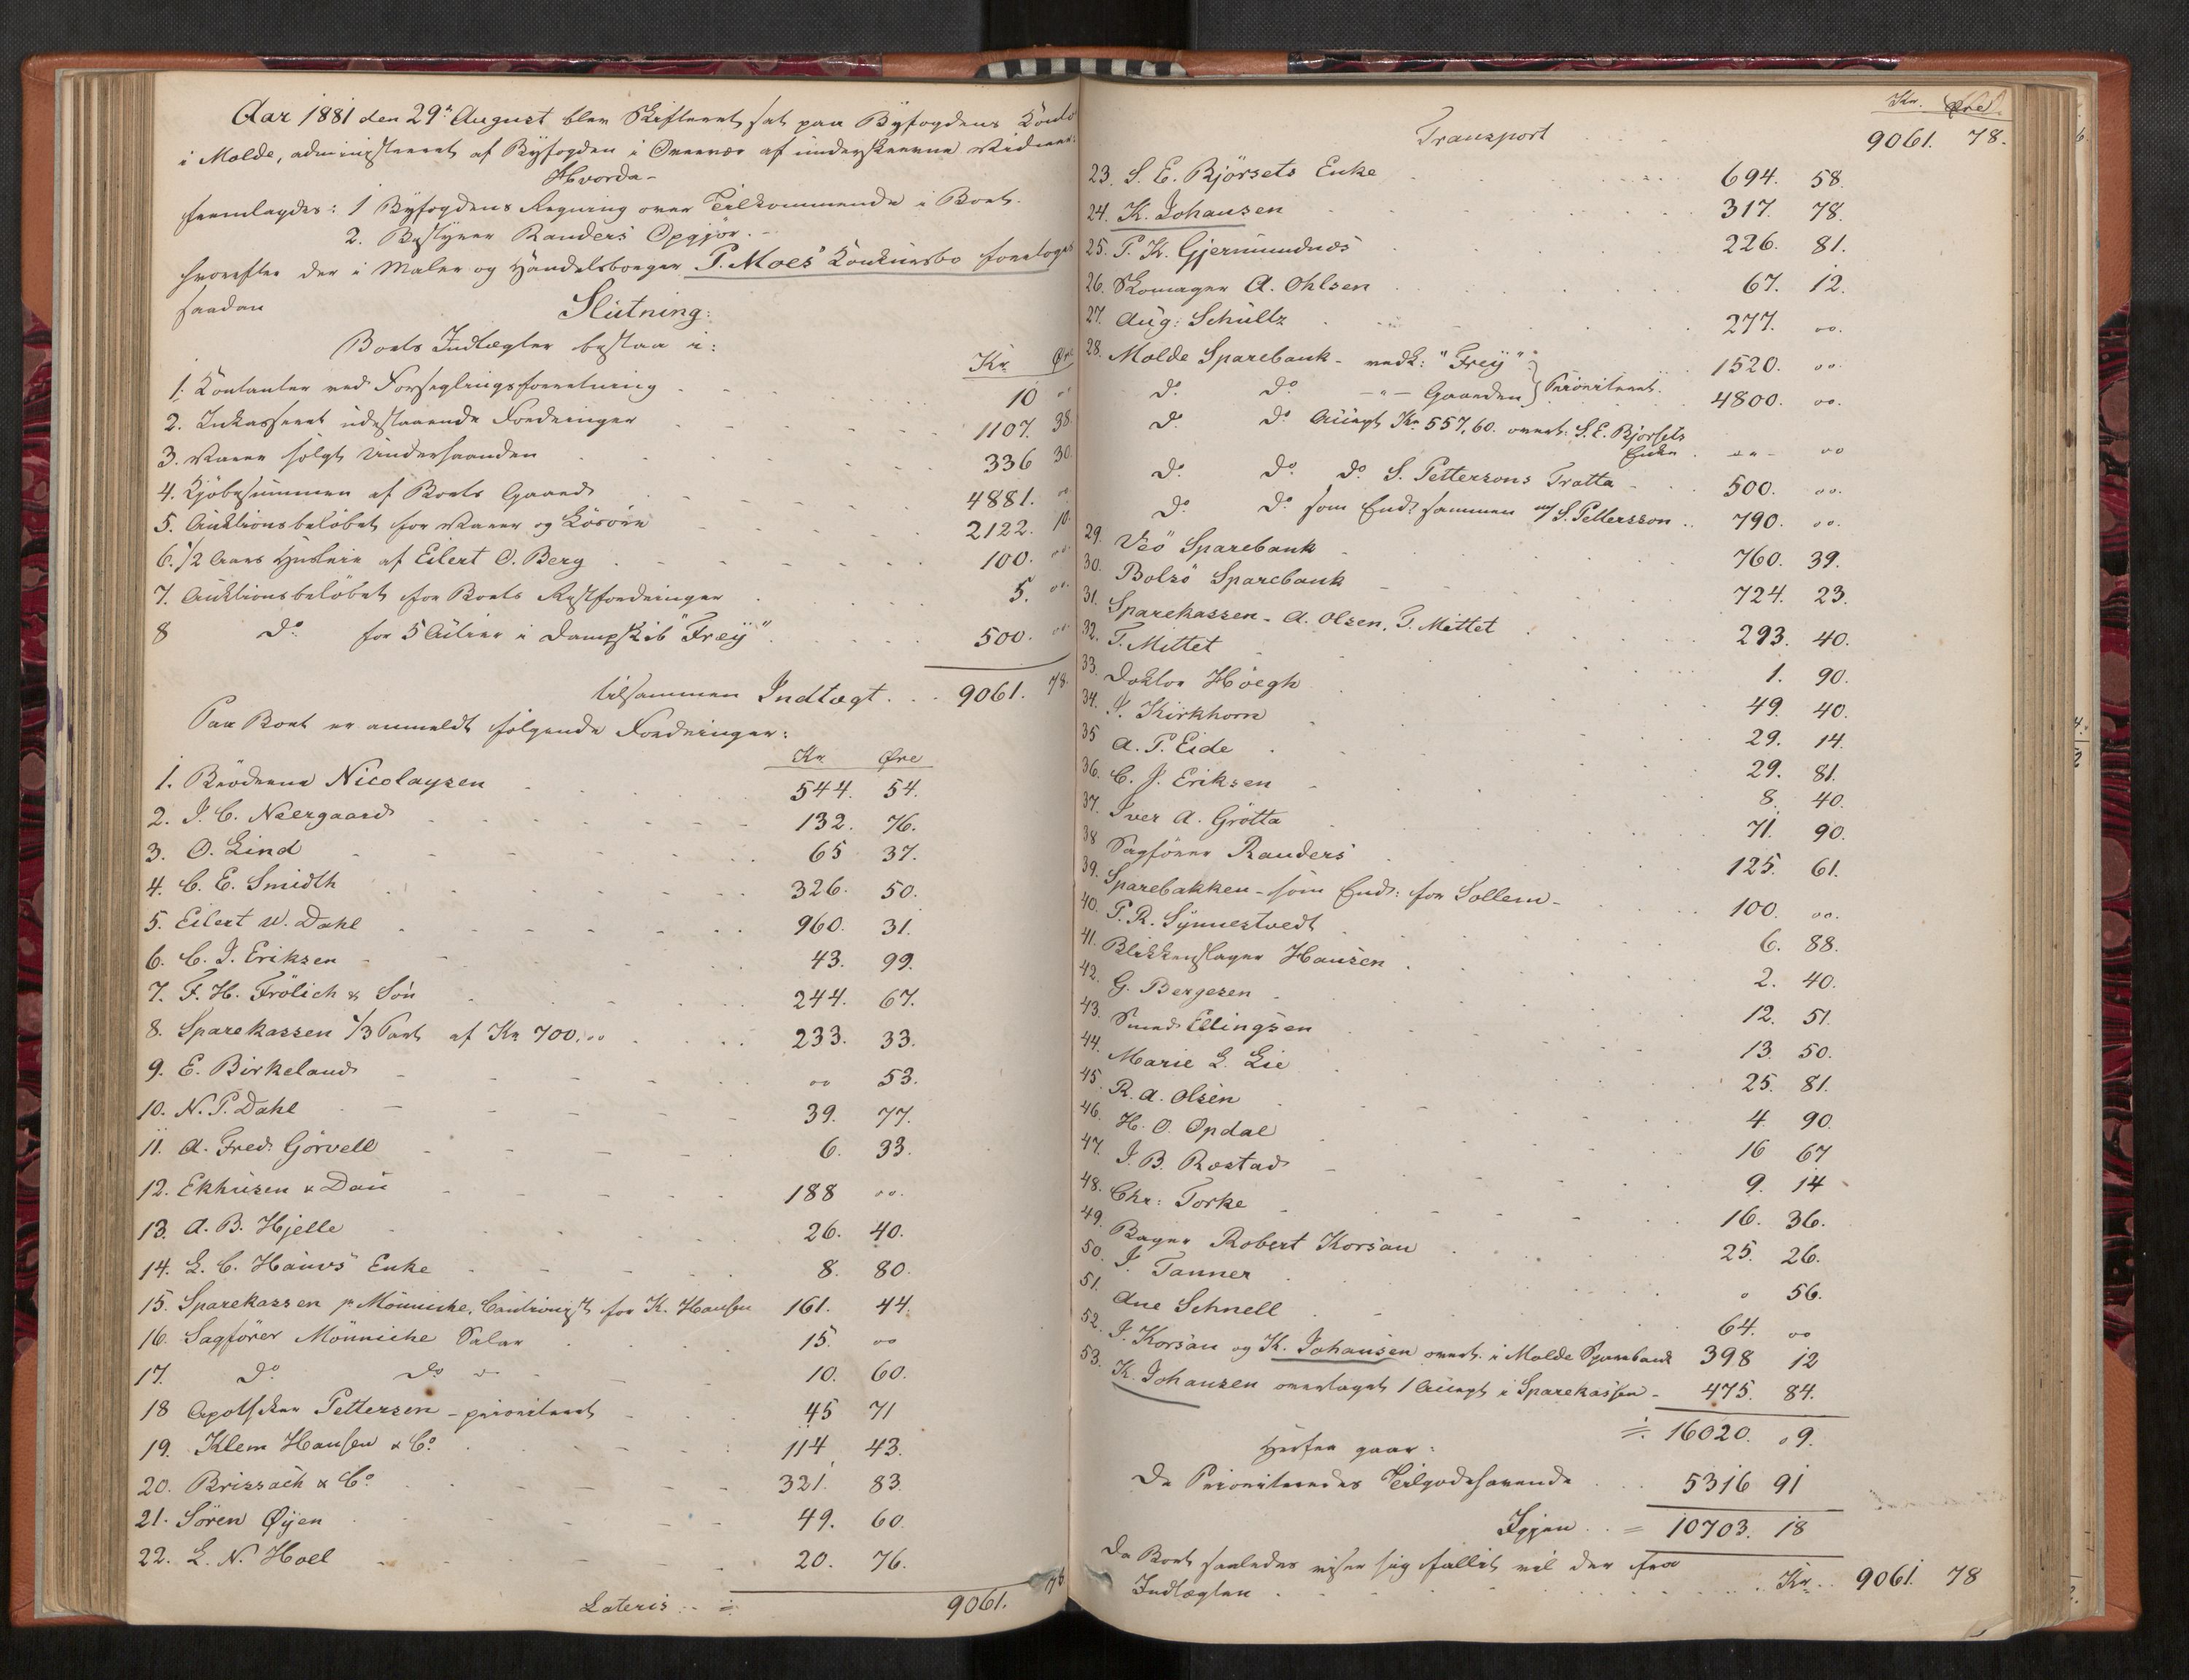 Aar 1881 den 29de August blev Skifteret sat paa Byfogdens Konto
i Molde, administreret af Byfogden i Overvær af underskrevne Vidner.
Hvorda
fremlagdes: 1 Byfogdens Regning over Tilkommende i Boet.
2. Bestyrer Randers' Opgjør.
hvorefter der i Maler og Handelsborger P. Moes' Konkursbo foretoges
saadan
Slutning:
Boets Indtægter bestaa i:
Kr. Øre
1. Kontanter ved Forseglingsforretning 10 "
2. Inkasseret udestaaende Fordringer 1107. 38.
3. Varer solgt underhaanden 336 30.
4. Kjøbesummen af Boets Gaard 4881. "
5. Auktionsbeløbet for Varer og Løsøre 2122. 10.
6. 1/2 Aars Husleie af Eilert O. Berg 100. "
7. Auktionsbeløbet for Boets Restfordringer 5. "
8 Do for 5 Actier i Dampskib "Frey" 500. "
tilsammen Indtægt 9061. 78.
Paa Boet er anmeldt følgende Fordringer:
Kr. Øre
1. Brødrene Nicolaysen 544. 54.
2. J. C. Neergaard 132. 76.
3. O. Lind 65 37.
4. C. E. Smidth 326. 50.
5. Eilert W. Dahl 960. 31.
6. C. J. Eriksen 43. 99.
7. F. H. Frölich & Sön 244. 67.
8. Sparekassen 1/3 Part af Kr 700,00 233. 33.
9. E. Birkeland 00 53.
10. N. P. Dahl 39. 77.
11. A. Fred. Görvell 6. 33.
12. Ekhusen & Dau 188 00.
13. A. B. Hjelle 26. 40.
14. L. C. Hauvs' Enke 8. 80.
15. Sparekassen pr Mönniche, Cautionist for K. Hansen 161. 44.
16. Sagförer Mönniche Salar 15. 00
17. Do Do 10. 60.
18 Apotheker Pettersen - prioriteret 45 71
19. Klem Hansen & Co 114 43.
20. Brissach & Co 321. 83.
21. Sören Øyen 49. 60.
22. L. N. Hoel 20. 76.
Lateris 9061. 78
Kr. Øre.
Transport 9061. 78.
23. S. E. Bjørsets Enke 694. 58.
24. K. Johansen 317. 78.
25. P. K. Gjermundnæs 226. 81.
26. Skomager A. Ohlsen 67. 12.
27. Aug: Schultz 277. 00.
28. Molde Sparebank - vedk: "Frey" 1520. 00.
Do Do - " - Gaarden } Prioriteret. 4800. 00.
Do Do Accept Kr 557,60. overt: S. E. Bjørsets
Enke - " - 00
Do Do Do S. Petterzons Tratta 500. 00.
Do Do som End: sammen m/ S. Pettersson 790. 00.
29. Veö Sparebank 760. 39.
30. Bolsö Sparebank 724. 23.
31. Sparekassen - A. Olsen, T. Mittet 293. 40.
32. T. Mittet 1. 90.
33. Doktor Höegh 49. 40.
34. J. Kirkhorn 29. 14.
35 A. P. Eide 29. 81.
36. C. J. Eriksen 8. 40.
37. Iver A. Grötta 71. 90.
38 Sagförer Randers 125. 61.
39. Sparebakken - som End: for Sollem 100. 00.
40. P. R. Synnestvedt 6. 88.
41. Blikkenslager Hansen 2. 40.
42. G. Bergesen 12. 51.
43. Smed Ellingsen 13. 50.
44. Marie L. Lie 25. 81.
45. R. A. Olsen 4. 90.
46. H. O. Opdal 16 67
47. J. B. Rostad 9. 14
48. Chr: Torke 16. 36.
49. Bager Robert Korsau 25. 26.
50. J. Tanner " 56.
51. Ane Schnell 64. 00
52. J. Korsau og K. Johansen overt. i Molde Sparebank 398 12
53. K. Johansen overtaget 1 Accept i Sparekassen 475. 84.
16020. 09.
Herfra gaar:
De Prioriteredes Tilgodehavende 5316 91
Igjen = 10703. 18
Da Boet saaledes viser sig fallit vil der fra
Indtægten Kr. 9061. 78